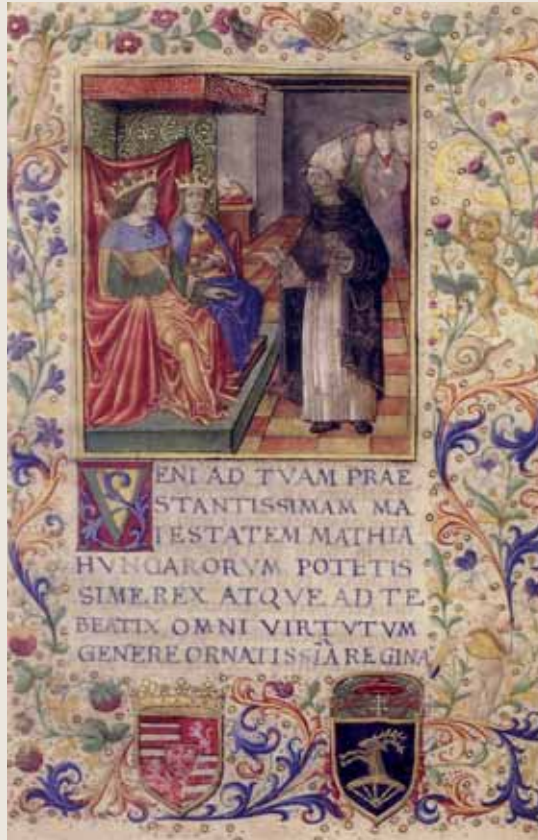 VENI AD TVAM PRAE
STANTISSIMAM MA
IESTATEM MATHIA
HVNGARORVM POTETIS
SIME.REX ATQVE AD TE
BEATIX OMNI VIRTVTVM
GENERE ORNATISSIA REGINA